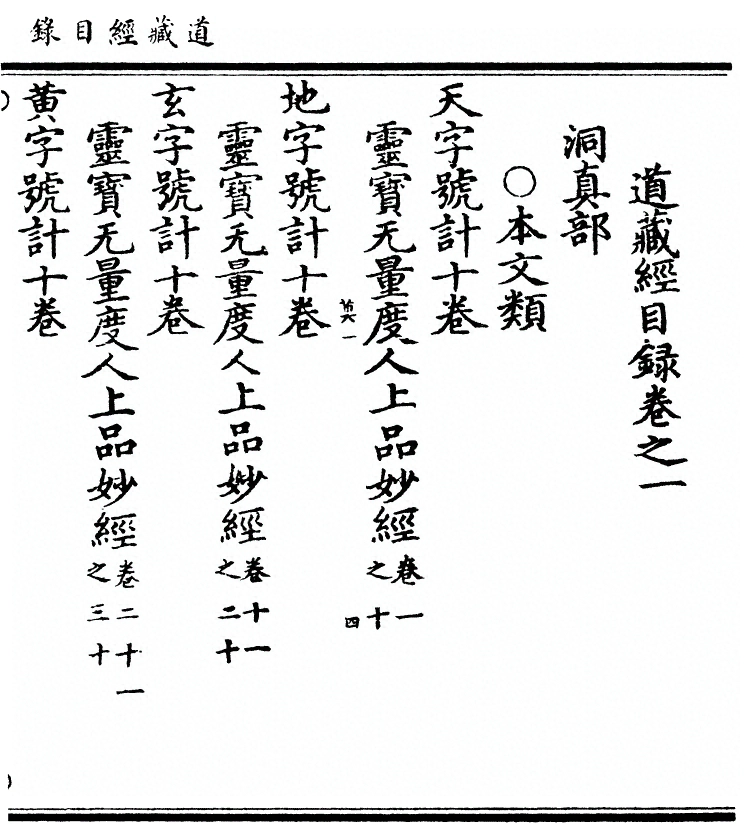 道藏經目錄
道藏經目録卷之一
洞真部
○本文類
天字號計十卷
靈寶无量度人上品妙經卷一之十
四
地字號計十卷
靈寶无量度人上品妙經卷十一之二十
玄字號計十卷
靈寶无量度人上品妙經卷二十一之三十
黃字號計十卷